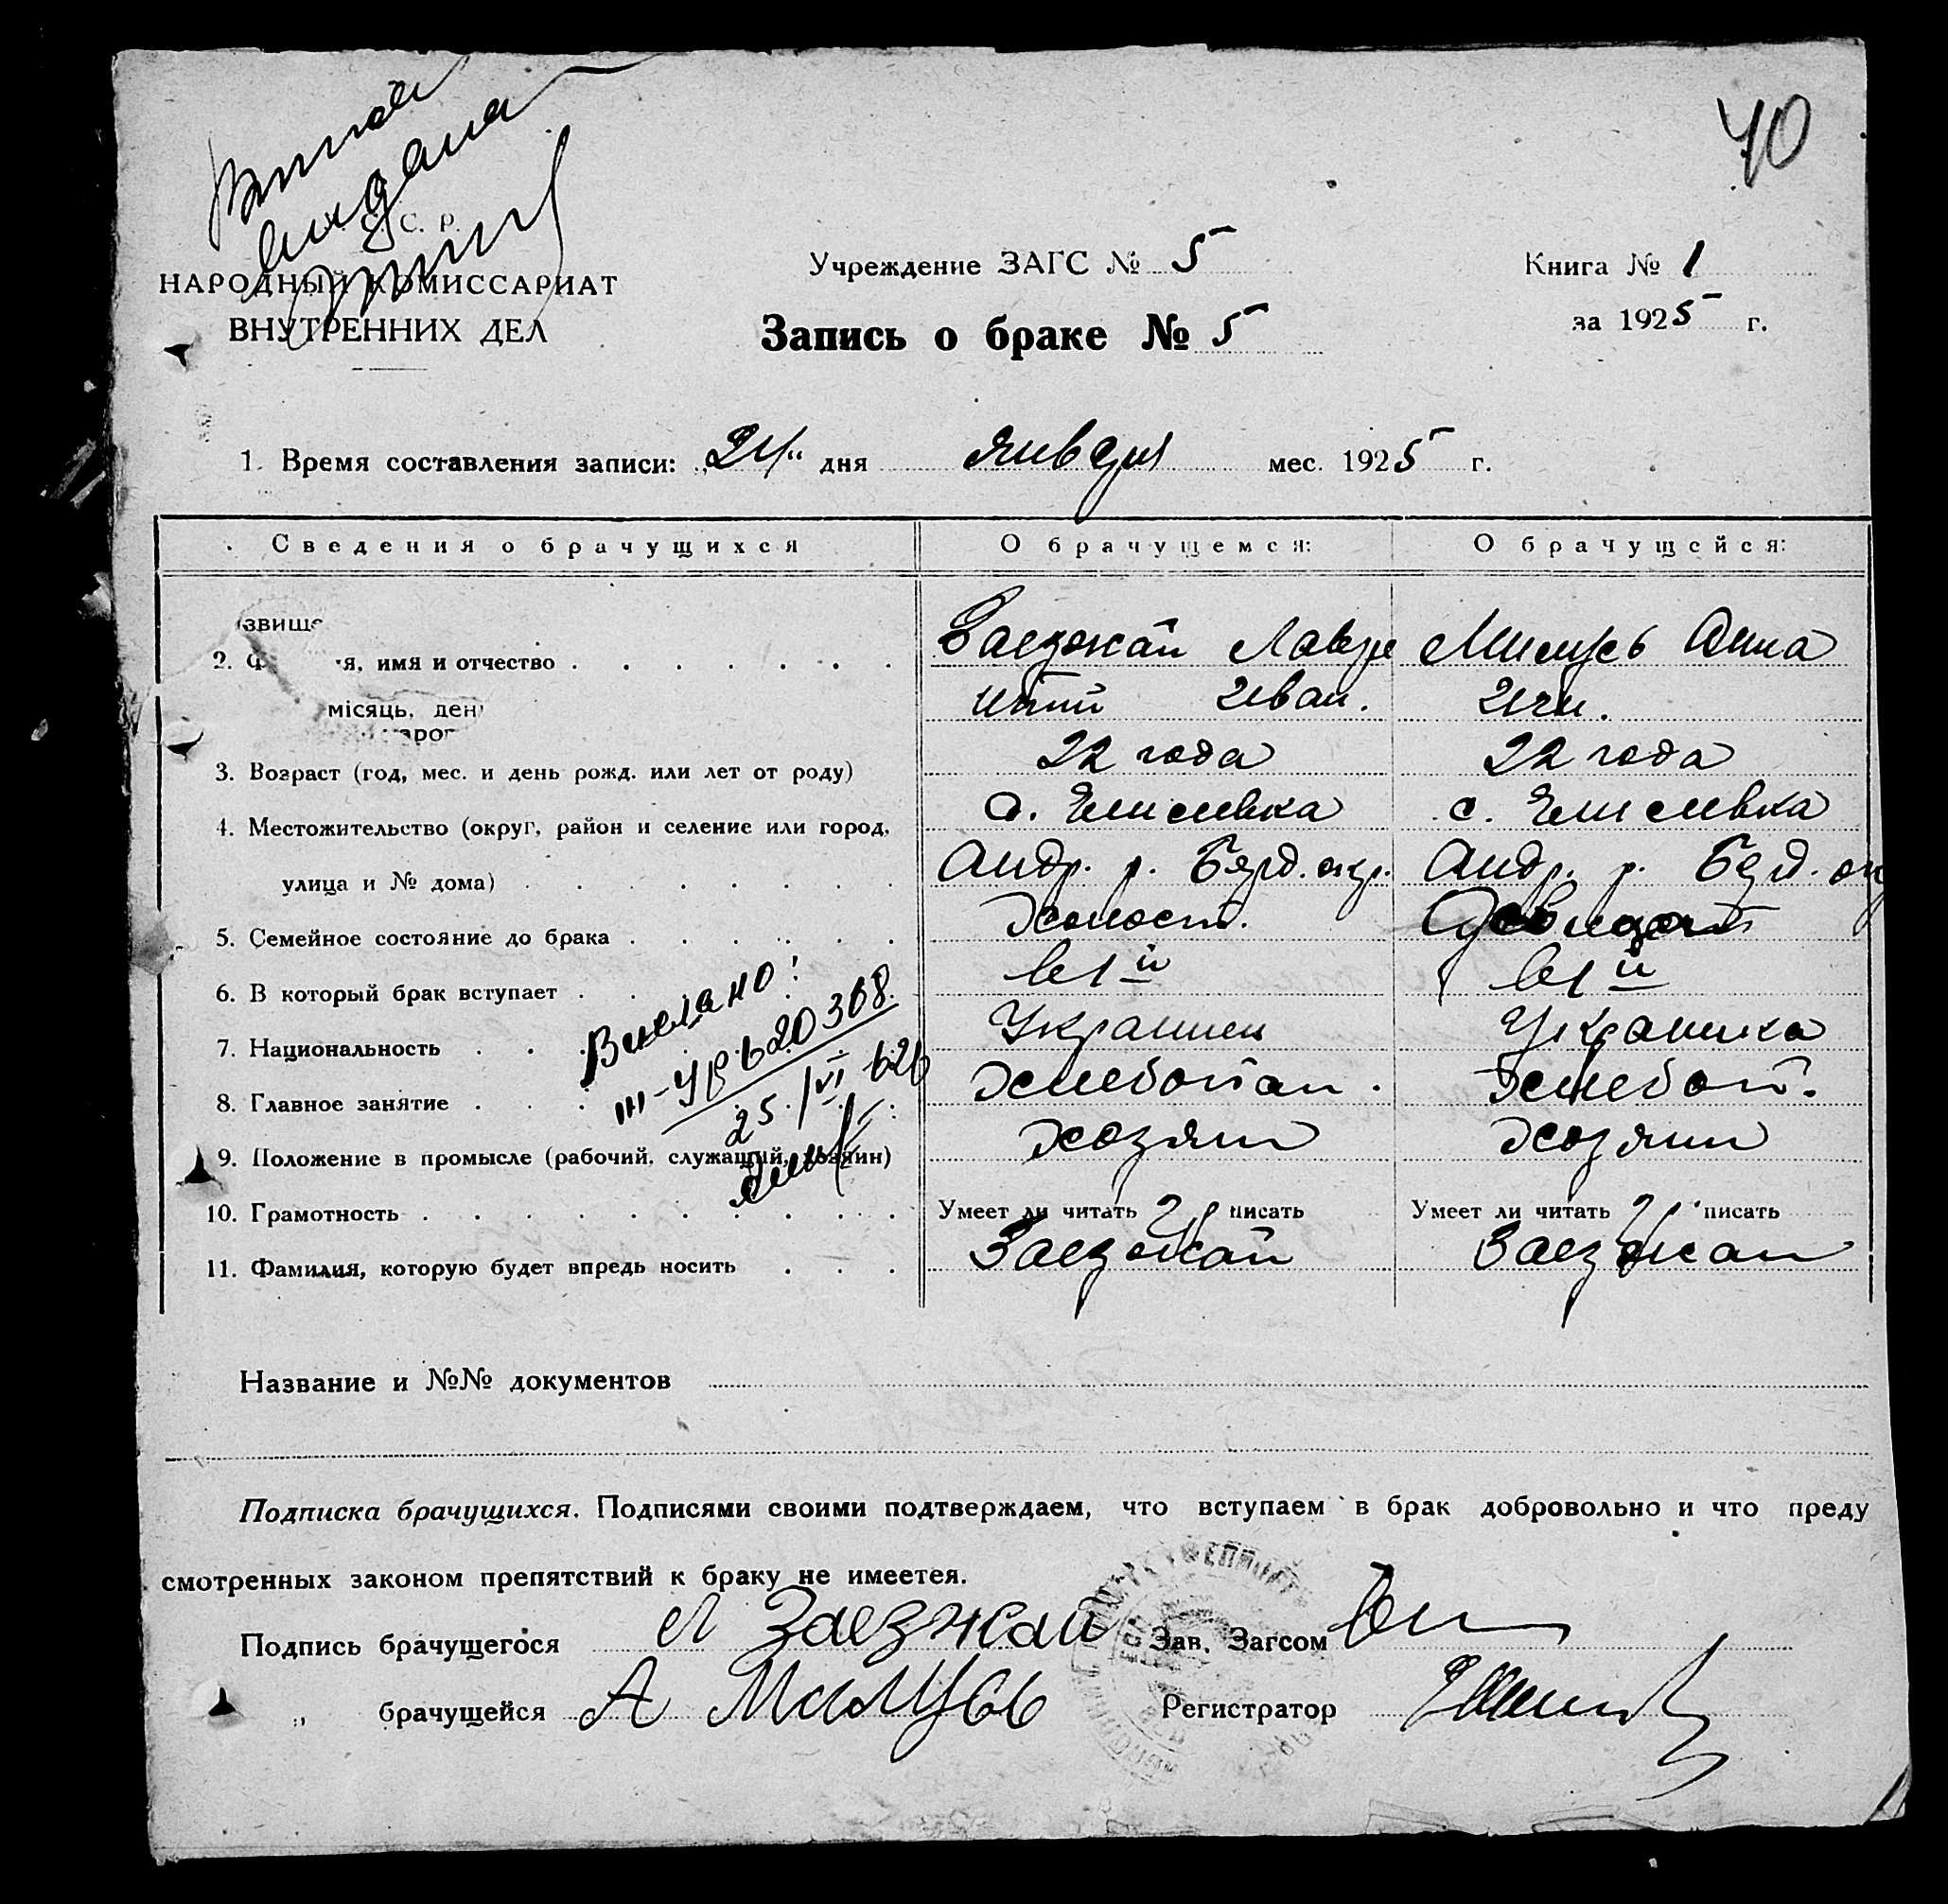 70
С. Р.
НАРОДНЫЙ КОМИССАРИАТ
ВНУТРЕННИХ ДЕЛ
Учреждение ЗАГС № 5
Книга № 1
за 1925 г.
Запись о браке № 5
1. Время составления записи: „24" дня января мес. 1925 г.
Сведения о брачущихся О брачущемся: О брачущейся:
звище
2. Ф я, имя и отчество Заезжай Лавре Милусь Анна
нтий Иван. Игн.
місяць, ден
3. Возраст (год, мес. и день рожд. или лет от роду) 22 года 22 года
4. Местожительство (округ, район и селение или город, с. Елисеевка с. Елисеевка
улица и № дома) Андр. р. Берд. окр. Андр. р. Берд. ок
5. Семейное состояние до брака Холост.
6. В который брак вступает в 1й в 1й
7. Национальность Украинец Украинка
8. Главное занятие Хлебопаш. Хлебоп.
9. Положение в промысле (рабочий, служащий, хозяин) Хозяин Хозяин
10. Грамотность Умеет ли читать и писать Умеет ли читать и писать
11. Фамилия, которую будет впредь носить Заезжай Заезжай
Выслано!
III-УР 620308
25/VI
Название и №№ документов
Подписка брачущихся. Подписями своими подтверждаем, что вступаем в брак добровольно и что преду
смотренных законом препятствий к браку не имеется.
Подпись брачущегося Л Заезжай Зав. Загсом
„ брачущейся А Милусь Регистратор